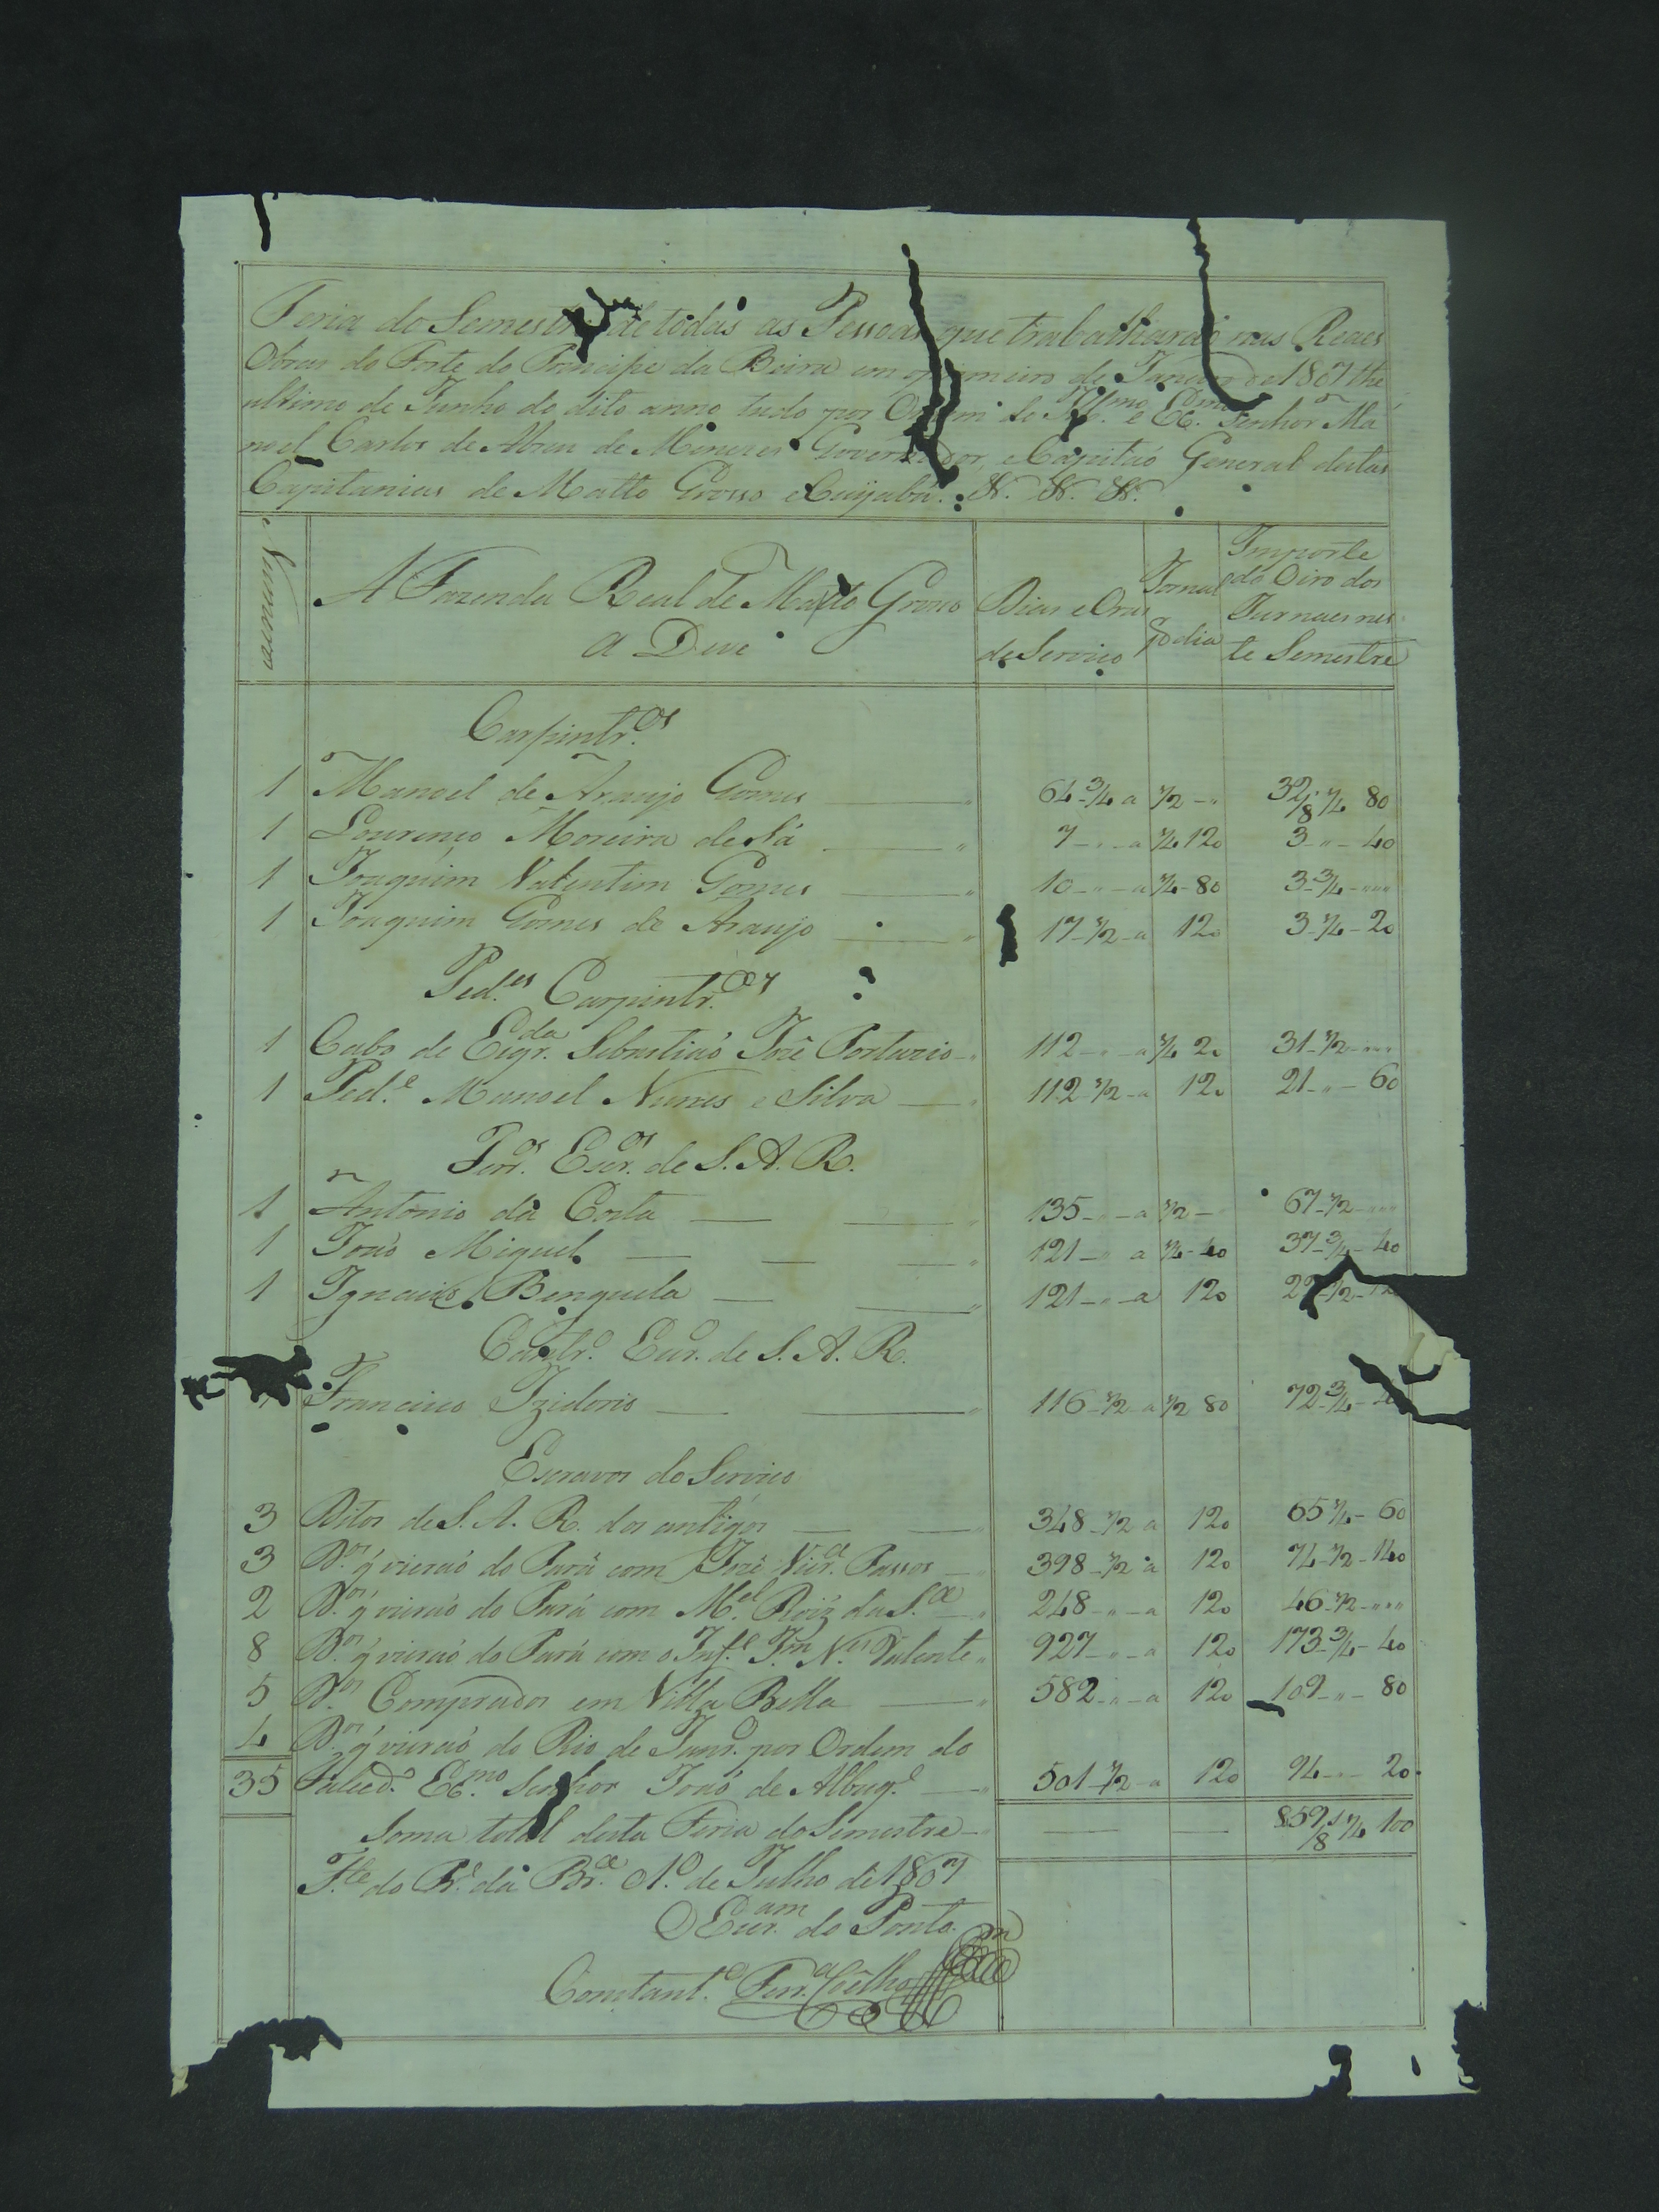 Feria do Semestre de todas as Pessoas que trabalharaó nas Reaes
Obras do Forte do Principe da Beira em o primeiro de Janeiro de 1807 the
ultimo de Junho do dito anno tudo por Ordem do Illmo. e Exmo. Senhor Ma
noel Carlos de Abreu de Menezes Governador, e Capitaó General destas
Capitanias de Matto Grosso e Cuyabá. &. &. &.
Numeros
A Fazenda Real de Matto Grosso
a Deve
Dias e Oras
de Serviço
Jornal
p dia
Importe
do Oiro dos
Jurnaes nes
te Semestre
Carpintr.os
1 Manoel de Araujo Gomes 64-3/4 a 1/2 -"- 32/8 1/4 80
1 Lourenço Moreira de Sá 7 - " - a 1/4 120 3 - " - 40
1 Joaquim Valentim Gomes 10 - " - a 1/4 - 80 3-3/4 - " "
1 Joaquim Gomes de Araujo 17-1/2 - a 120 3-1/4 - 20
Ped.es Carpintr.os
1 Cabo de Esqr.da Sebastiaó José Portuzio 112 - " - a 1/4 20 31-1/2 - " "
1 Ped.e Manoel Nunes e Silva 112-1/2 - a 120 21 - " - 60
Ferr.os Escr.os de S. A. R.
1 Antonio da Costa 135 - " - a 1/2 - " 67-1/2 - " "
1 Joaó Miguel 121 - " a 1/4 - 40 37-3/4 - 40
1 Ignacio Benguela 121 - " - a 120 22-1/2
Cantr.o Escr.o de S. A. R.
Francisco Izidorio 116-1/2 - a 1/2 80 72-3/4
Escravos do Serviço
3 Ditos de S. A. R. dos antigos 348-1/2 a 120 65 1/4 - 60
3 D.os q̃ vieraó do Pará com José Vier.a Passos 398-1/2 a 120 74-1/2 - 140
2 D.os q̃ vieraó do Pará com M.el Roiz da S.a 248 - " - a 120 46-1/2 - " "
8 D.os q̃ vieraó do Pará com o Inf.e J.m N.es Valente 927 - " - a 120 173-3/4 - 40
5 D.os Comprados em Villa Bella 582 - " - a 120 109 - " - 80
4 D.os q̃ vieraó do Rio de Janr.o por Ordem do
35 Falecd.o Exmo. Senhor Joaó de Albuq.e 501-1/2 - a 120 94 - " - 20
Soma total desta Feria do Semestre 859/8 1/4 100
F.te do Pr.e da Br.a 1.o de Julho de 1807
O Escr.am do Ponto
Constant.o Ferr.a Coêlho